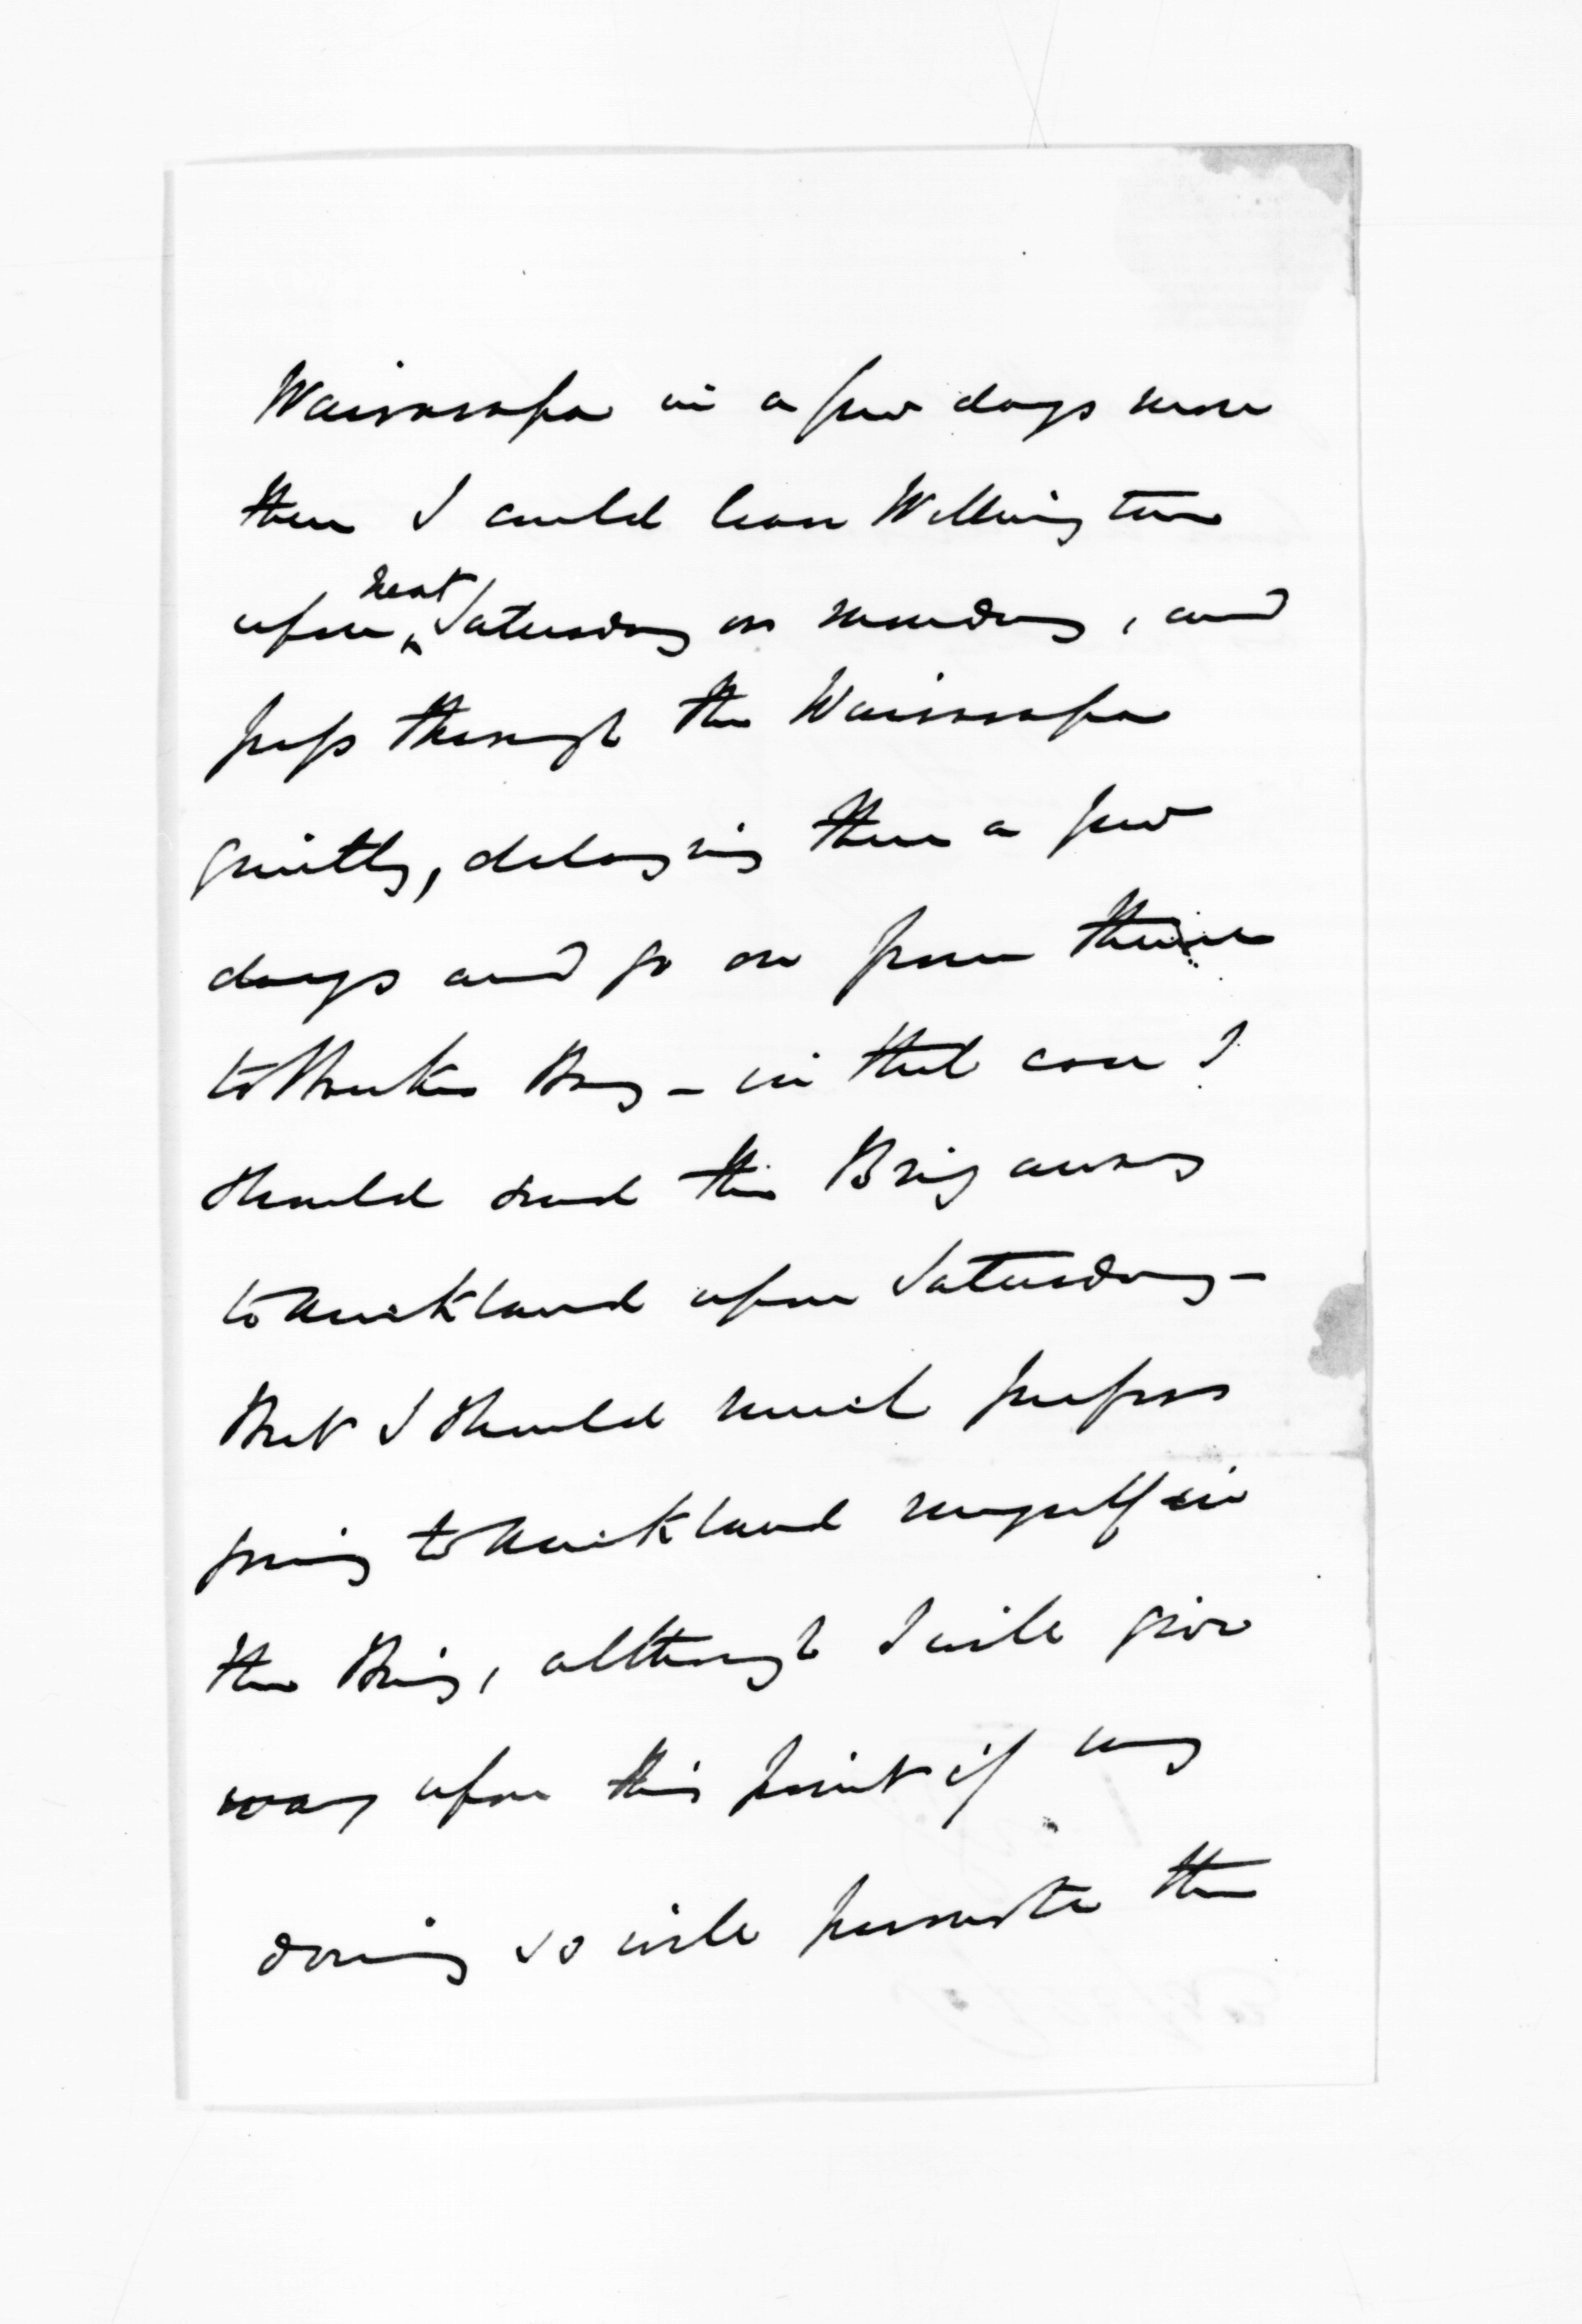 Wairarapa in a few days more
then I could leave Wellington
upon next Saturday or Monday, and
pass through the Wairarapa
quietly, delaying there a few
days and go on from there
to Hawkes Bay – in that case I
should send the Brig away
to Auckland upon Saturday –
But I should much prefer
going to Auckland myself in
the Brig, although I will give
way upon this point if my
doing so will promote the